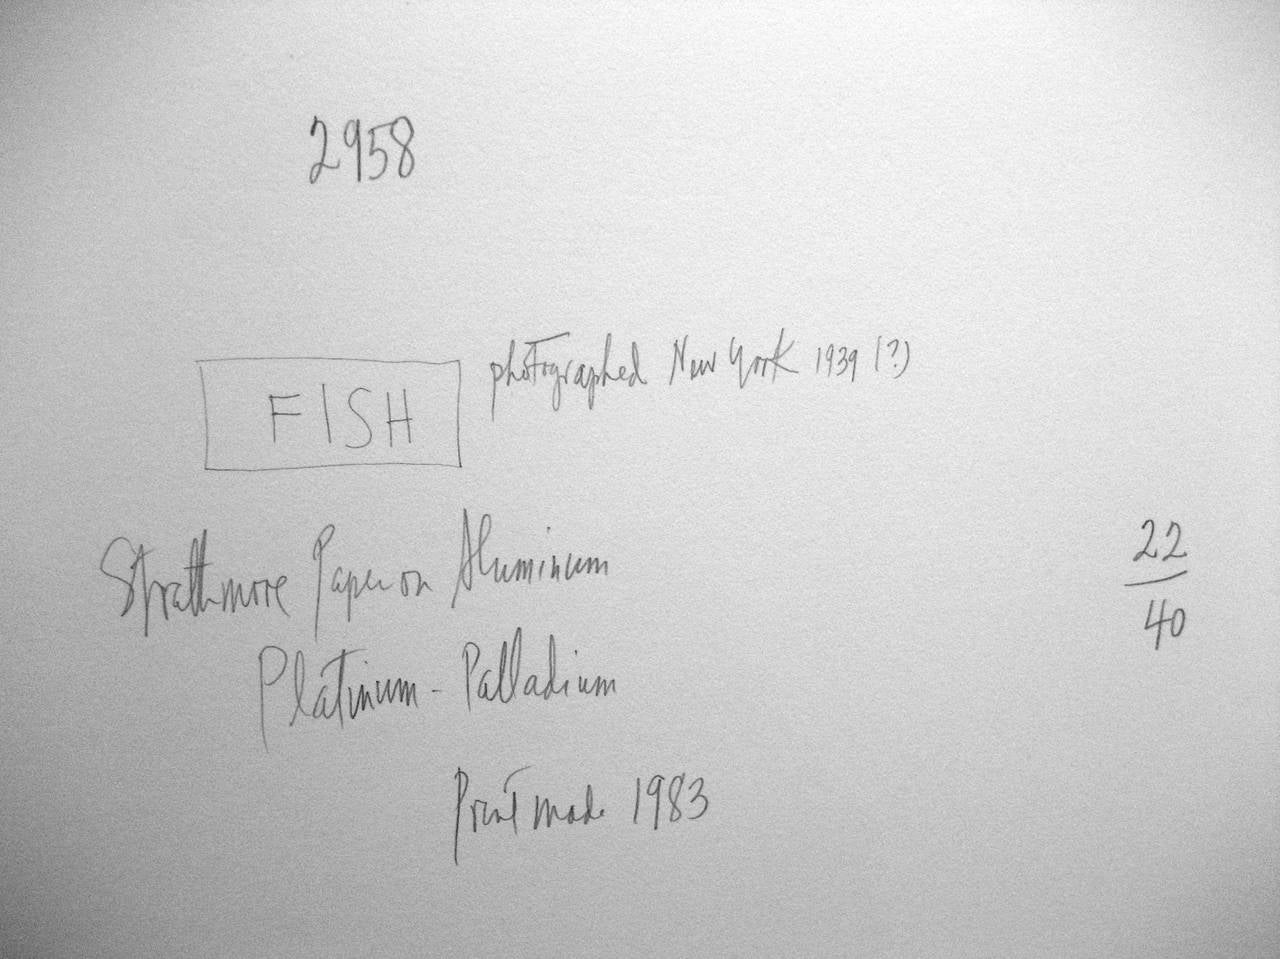 2958
photographed New York 1939 (?)
FISH
Strathmore Paper on Aluminum
22
40
Platinum - Palladium
Print made 1983